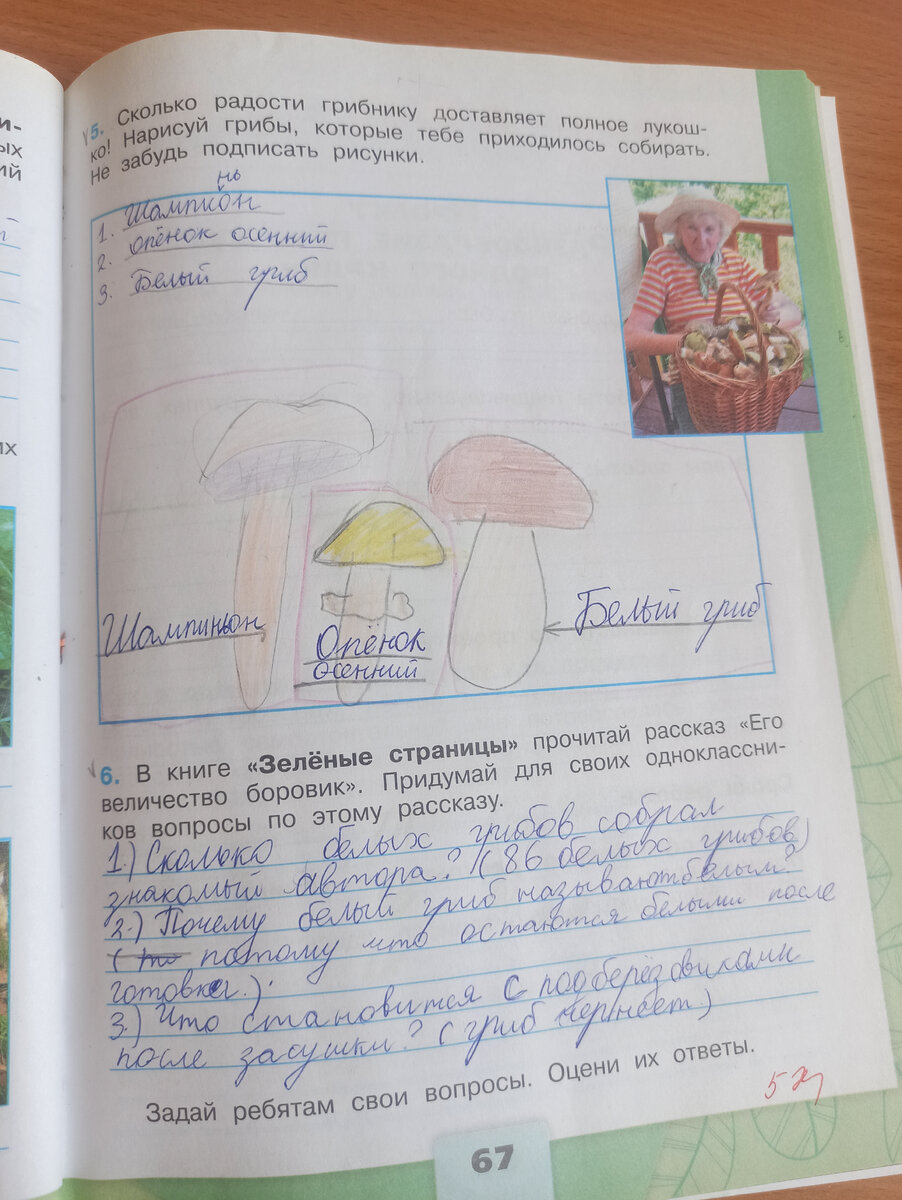 5. Сколько радости грибнику доставляет полное лукош-
ко! Нарисуй грибы, которые тебе приходилось собирать.
Не забудь подписать рисунки.
нь
1. Шампион
2. опёнок осенний
3. Белый гриб
Шампиньон
Опёнок
осенний
Белый гриб
6. В книге «Зелёные страницы» прочитай рассказ «Его
величество боровик». Придумай для своих одноклассни-
ков вопросы по этому рассказу.
1.) Сколько белых грибов собрал
знакомый автора? (86 белых грибов)
2.) Почему белый гриб называют белым?
( потому что остаются белыми после
готовки.).
3.) Что становится с подберёзовиками
после засушки? (гриб чернеет)
Задай ребятам свои вопросы. Оцени их ответы.
5
67
и-
ых
ий
их